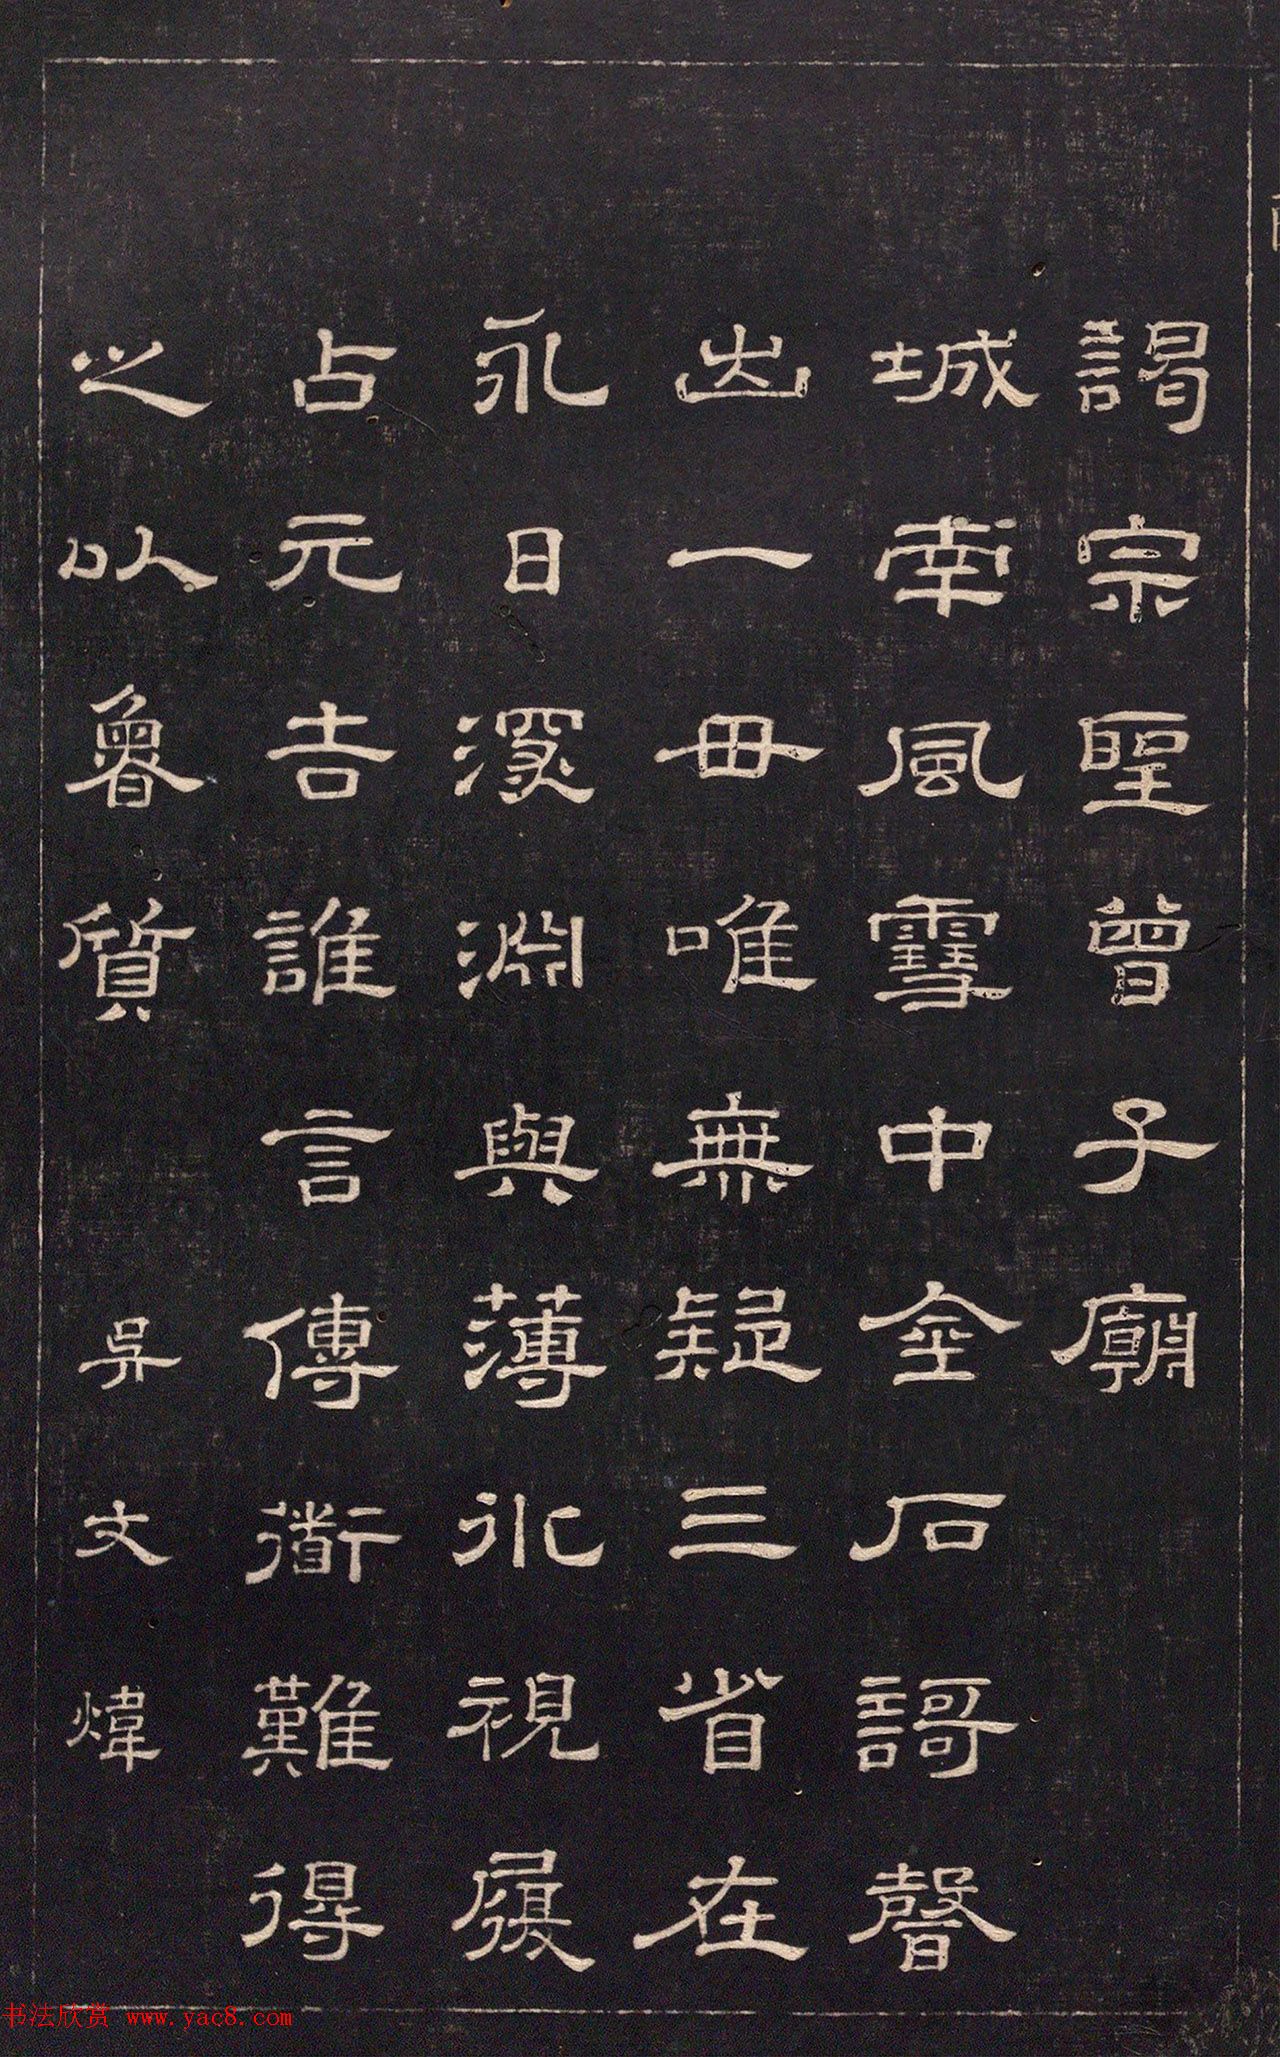 謁宗聖曾子廟
城南風雪中金石謌聲
出一毋唯無疑三省在
永日深淵與薄冰視履
占元吉誰言傳衜難得
之以魯質 吳文煒
书法欣赏 www.yac8.com